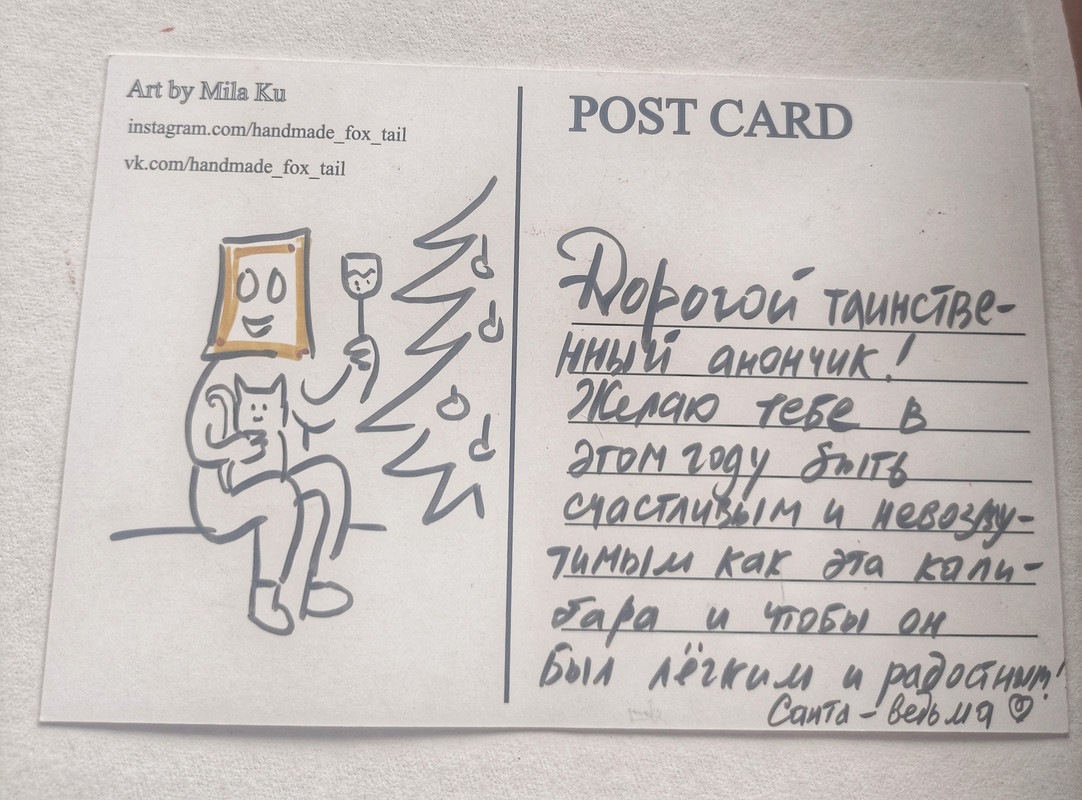 Art by Mila Ku
instagram.com/handmade_fox_tail
vk.com/handmade_fox_tail
POST CARD
Дорогой таинстве-
нный анончик!
Желаю тебе в
этом году быть
счастливым и невозму-
тимым как эта капи-
бара и чтобы он
был лёгким и радостным!
Санта-ведьма